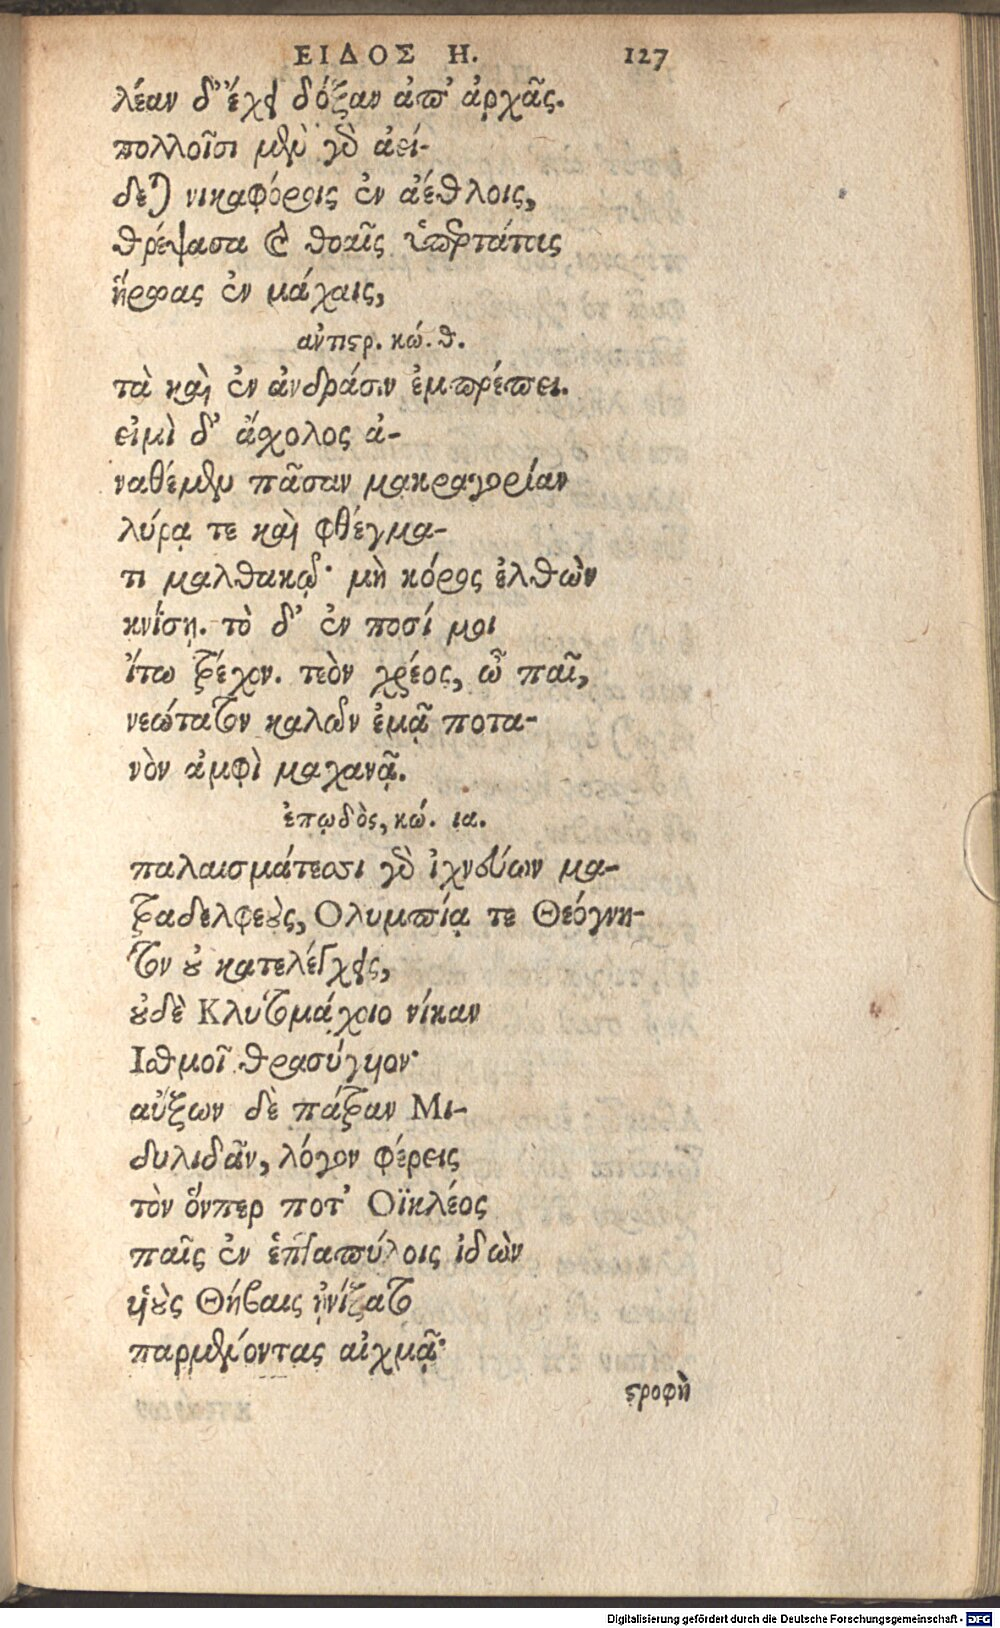 ΕΙΔΟΣ Η. 127
λέαν δ' ἔχει δόξαν ἀπ' ἀρχᾶς.
πολλοῖσι μὲν γὰρ ἀεί-
δεται νικαφόροις ἐν ἀέθλοις,
θρέψασα καὶ θοαῖς ὑπερτάτοις
ἥρωας ἐν μάχαις,
ἀντιστρ. κώ. θ.
τὰ καὶ ἐν ἀνδράσιν ἐμπρέπει.
εἰμὶ δ' ἄσχολος ἀ-
ναθέμεν πᾶσαν μακραγορίαν
λύρᾳ τε καὶ φθέγμα-
τι μαλθακῷ· μὴ κόρος ἐλθὼν
κνίσῃ. τὸ δ' ἐν ποσί μοι
ἴτω τρέχον. τεὸν χρέος, ὦ παῖ,
νεώτατον καλῶν ἐμᾷ ποτα-
νὸν ἀμφὶ μαχανᾷ.
ἐπῳδὸς, κώ. ια.
παλαισμάτεσσι γὰρ ἰχνεύων μα-
τραδελφεοὺς, Ολυμπίᾳ τε Θεόγνη-
τον οὐ κατελέγχεις,
οὐδὲ Κλυτομάχοιο νίκαν
Ισθμοῖ θρασύγυιον·
αὔξων δὲ πάτραν Μι-
δυλιδᾶν, λόγον φέρεις
τὸν ὅνπερ ποτ' Οϊκλέος
παῖς ἐν ἑπταπύλοις ἰδὼν
υἱοὺς Θήβαις ᾐνίξατο
παρμένοντας αἰχμᾷ·
στροφὴ
Digitalisierung gefördert durch die Deutsche Forschungsgemeinschaft - DFG